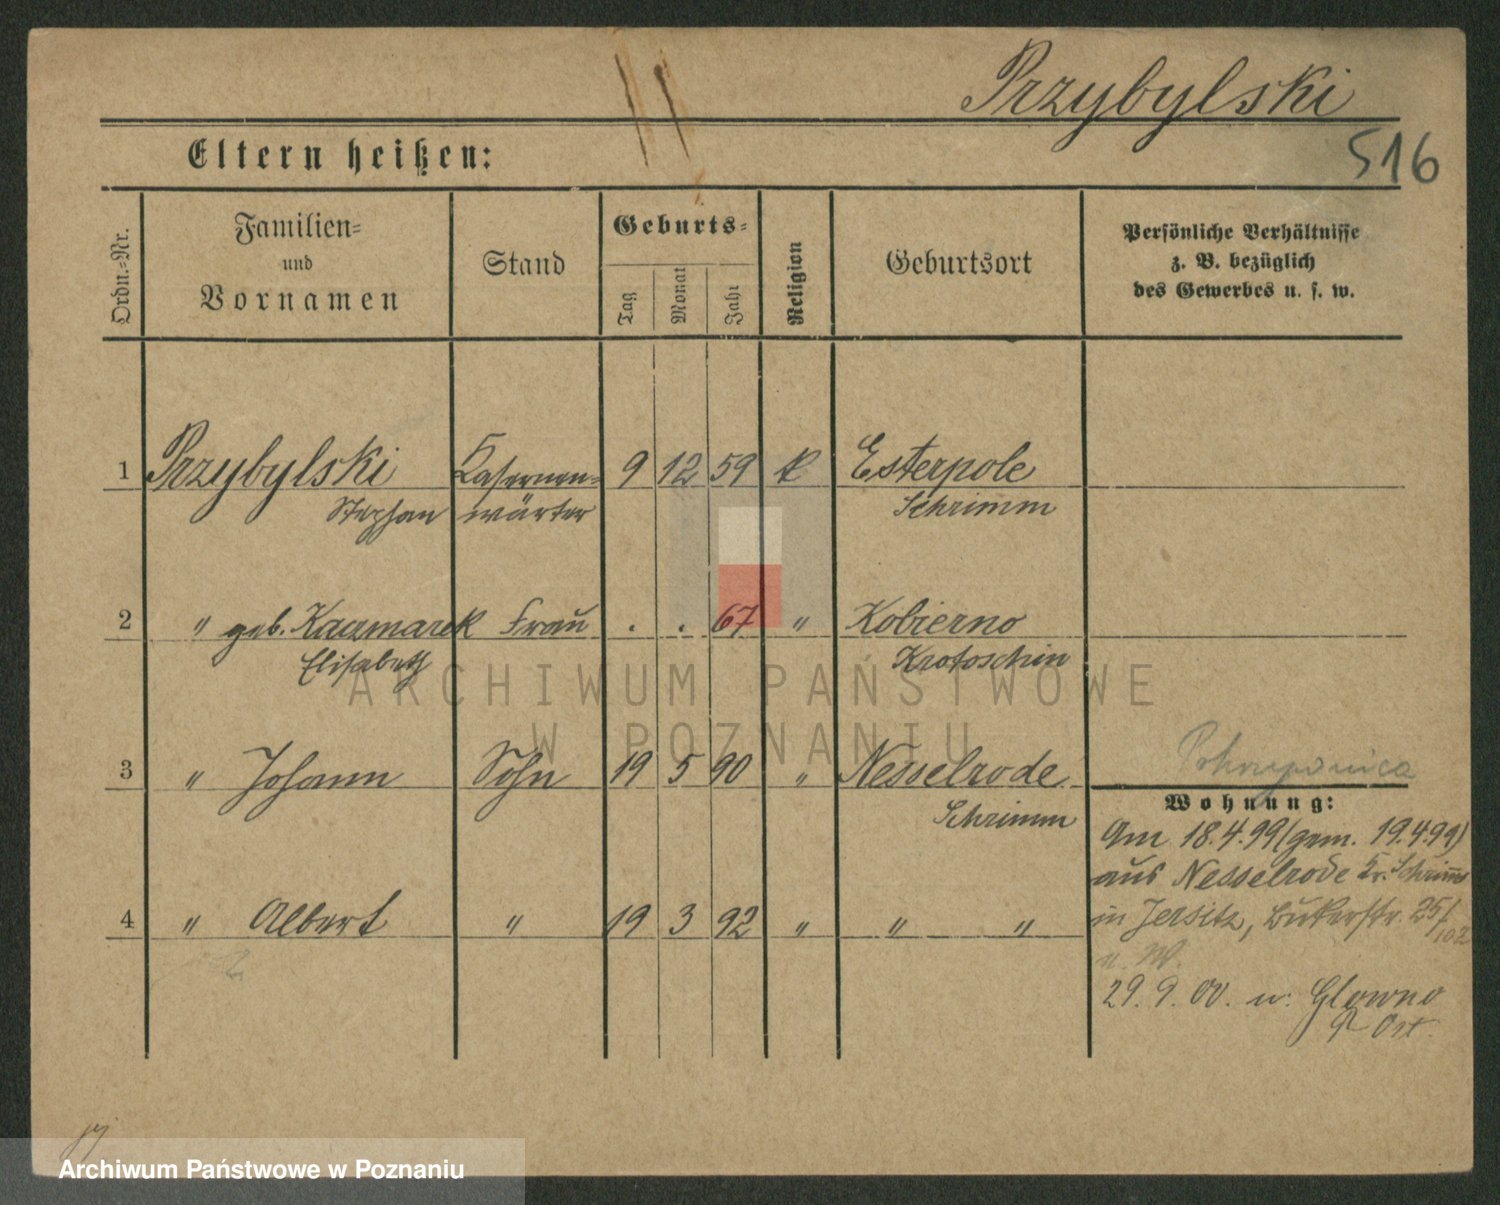 Przybylski
516
Eltern heißen:
Ordn.-Nr.
Familien-
und
Vornamen
Stand
Geburts-
Tag
Monat
Jahr
Religion
Geburtsort
Persönliche Verhältnisse
z. B. bezüglich
des Gewerbes u. s. w.
1 Przybylski Kasernen- 9 12 59 k Esterpole
Stephan wärter Schrimm
2 " geb. Kaczmarek Frau . . 67 " Kobierno
Elisabeth Krotoschin
3 " Johann Sohn 19 5 90 " Nesselrode
Schrimm
4 " Albert " 19 3 92 " " "
Wohnung:
Am 18.4.99 (gem. 19.4.99)
aus Nesselrode Kr. Schrimm
in Jersitz, Bukerstr. 25/
102
29.9.00. n. Glowno
P. Ost.
ARCHIWUM PAŃSTWOWE
W POZNANIU
Archiwum Państwowe w Poznaniu